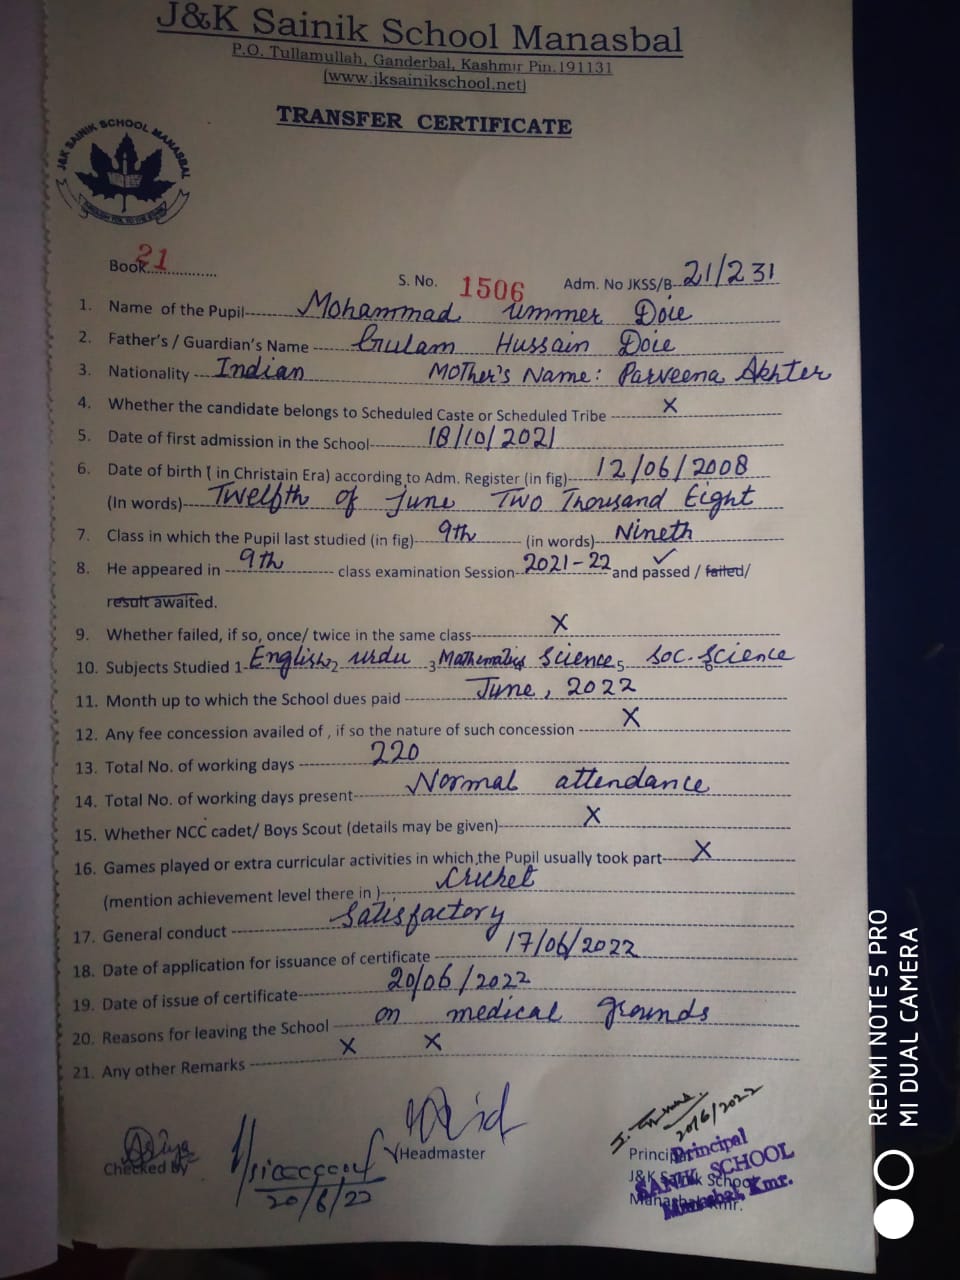 J&K Sainik School Manasbal
P.O. Tullamullah, Ganderbal, Kashmir Pin.191131
(www.jksainikschool.net)
TRANSFER CERTIFICATE
J&K SAINIK SCHOOL MANASBAL
Book 21 S. No. 1506 Adm. No JKSS/B 21/231
1. Name of the Pupil Mohammad Ummer Doie
2. Father's / Guardian's Name Gulam Hussain Doie
3. Nationality Indian Mother's Name: Parveena Akhter
4. Whether the candidate belongs to Scheduled Caste or Scheduled Tribe X
5. Date of first admission in the School 18/10/2021
6. Date of birth ( in Christain Era) according to Adm. Register (in fig) 12/06/2008
(In words) Twelfth of June Two Thousand Eight
7. Class in which the Pupil last studied (in fig) 9th (in words) Nineth
8. He appeared in 9th class examination Session 2021-22 and passed / failed/
result awaited.
9. Whether failed, if so, once/ twice in the same class X
10. Subjects Studied 1 English 2 Urdu 3 Mathematics Science 5 Soc. Science 6
11. Month up to which the School dues paid June, 2022
12. Any fee concession availed of , if so the nature of such concession X
13. Total No. of working days 220
14. Total No. of working days present Normal attendance
15. Whether NCC cadet/ Boys Scout (details may be given) X
16. Games played or extra curricular activities in which the Pupil usually took part X
(mention achievement level there in ) Cricket
17. General conduct Satisfactory
18. Date of application for issuance of certificate 17/06/2022
19. Date of issue of certificate 20/06/2022
20. Reasons for leaving the School on medical grounds
21. Any other Remarks X X
Checked by
20/6/22
Headmaster
20/6/2022
Principal
J&K Sainik School
Manasbal Kmr.
Principal
SANIK SCHOOL
Manasbal, Kmr.
REDMI NOTE 5 PRO
MI DUAL CAMERA